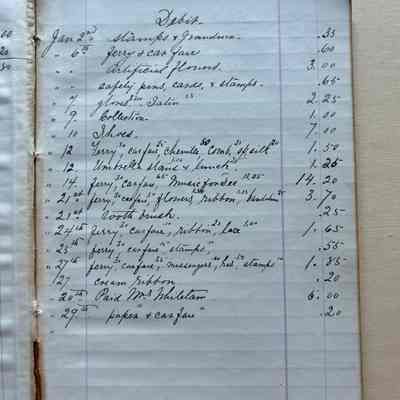 00
20
80
Debit.
Jan 2nd stamps & Grandma. .35
" 6th ferry & car fare .60
" " Artificial flowers. 3.00
" " safety pins, cards, & stamps. .65
" 7 gloves Satin 2.25
" 9 Collection. 1.00
" 10 Shoes. 7.00
" 12 ferry, carfare, chenille, Comb, silk 1.50
" 12 Umbrella stand & lunch 1.25
" 14 ferry, carfare, Music 14.20
" 21st ferry, carfare, flowers, ribbon, 3.70
" 21st Tooth brush. .25
" 24th ferry, carfare, ribbon, lace 1.65
" 25th ferry, carfare, stamps, .55
" 27th ferry, carfare, messenger, stamps 1.85
" 27 cream ribbon .20
" Paid Mrs Whitetam 6.00
" 29th paper & carfare .20
"